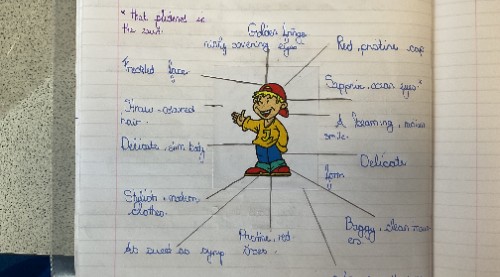 * that pierced se
the soul.
Golden fringe
nicely covering eyes
Red, pristine cap
Freckled face
Sapphire ocean eyes*
Straw-coloured
hair.
A beaming,
smile.
Delicate, slim body
Delicate
form
Stylish, modern
clothes.
Baggy, clean
ers
As sweet as syrup
Pristine, red
shoes.